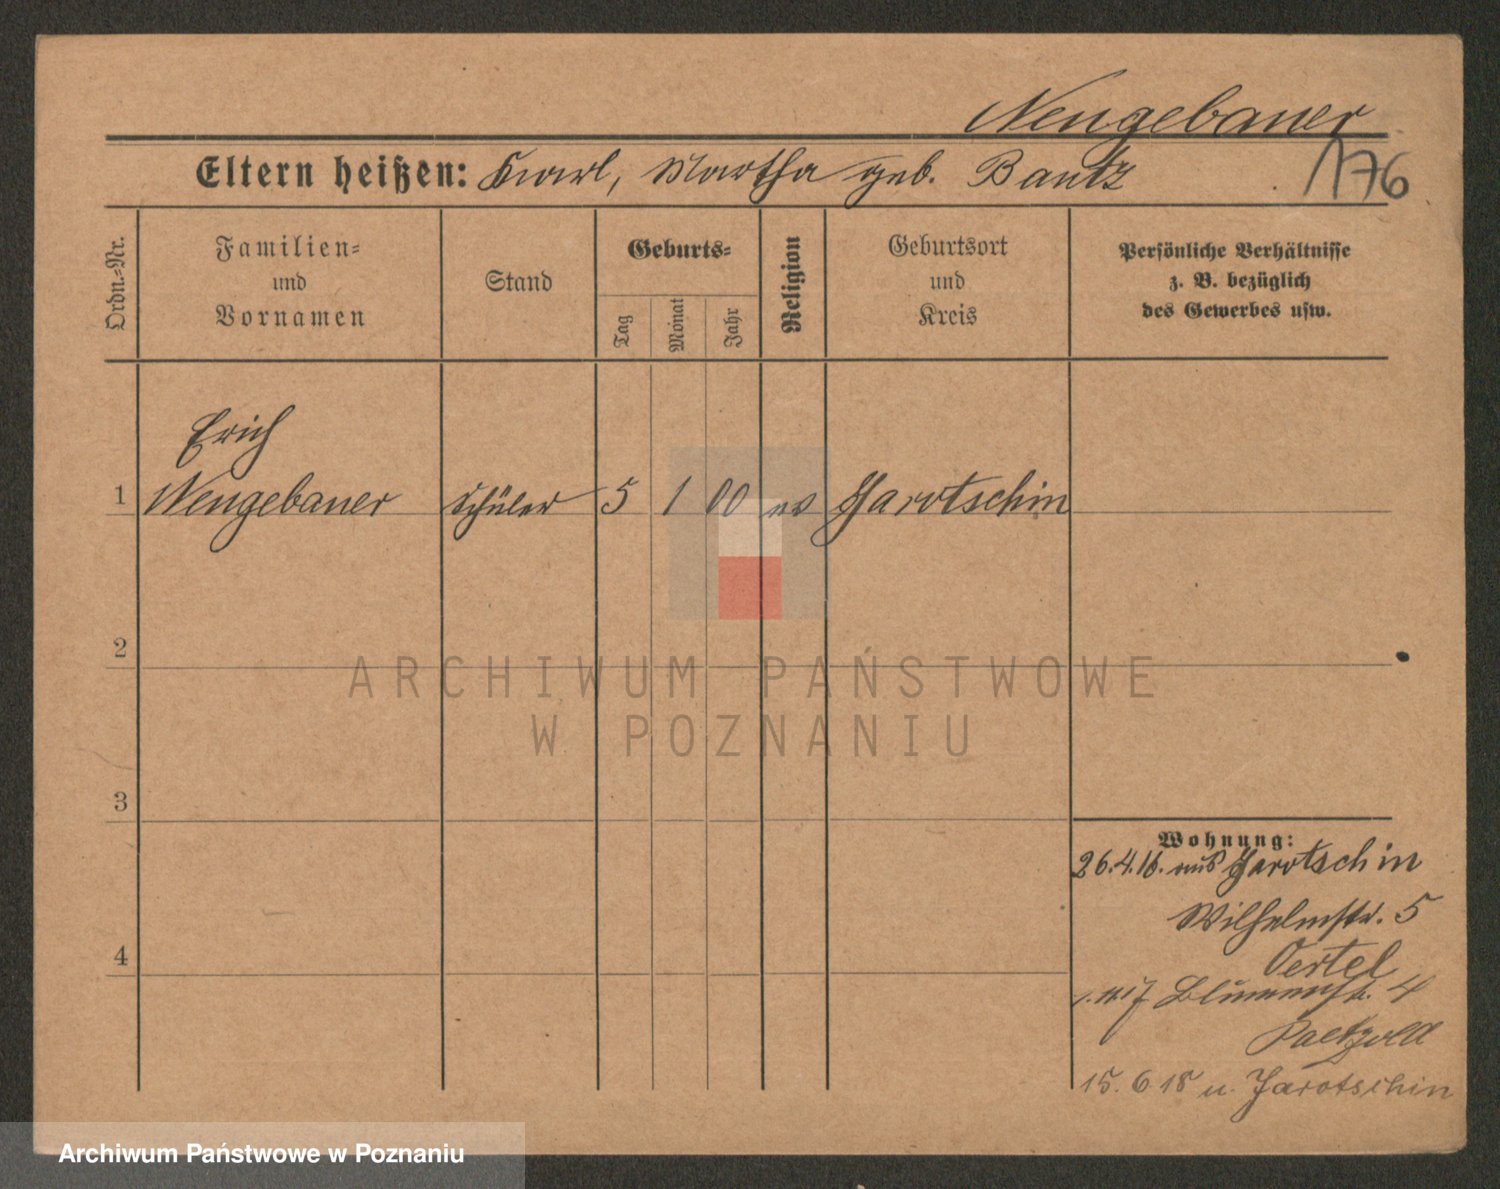 Neugebauer
Eltern heißen: Karl, Martha geb. Bautz
176
Ordn.-Nr.
Familien-
und
Vornamen
Stand
Geburts-
Tag
Monat
Jahr
Religion
Geburtsort
und
Kreis
Persönliche Verhältnisse
z. B. bezüglich
des Gewerbes usw.
Erich
1 Neugebauer Schüler 5 1 00 ev Jarotschin
2
3
4
Wohnung:
26.4.16. aus Jarotschin
Wilhelmstr. 5
Oertel
Blumenstr. 4
Paetzold
15. 6 18 n. Jarotschin
ARCHIWUM PAŃSTWOWE
W POZNANIU
Archiwum Państwowe w Poznaniu